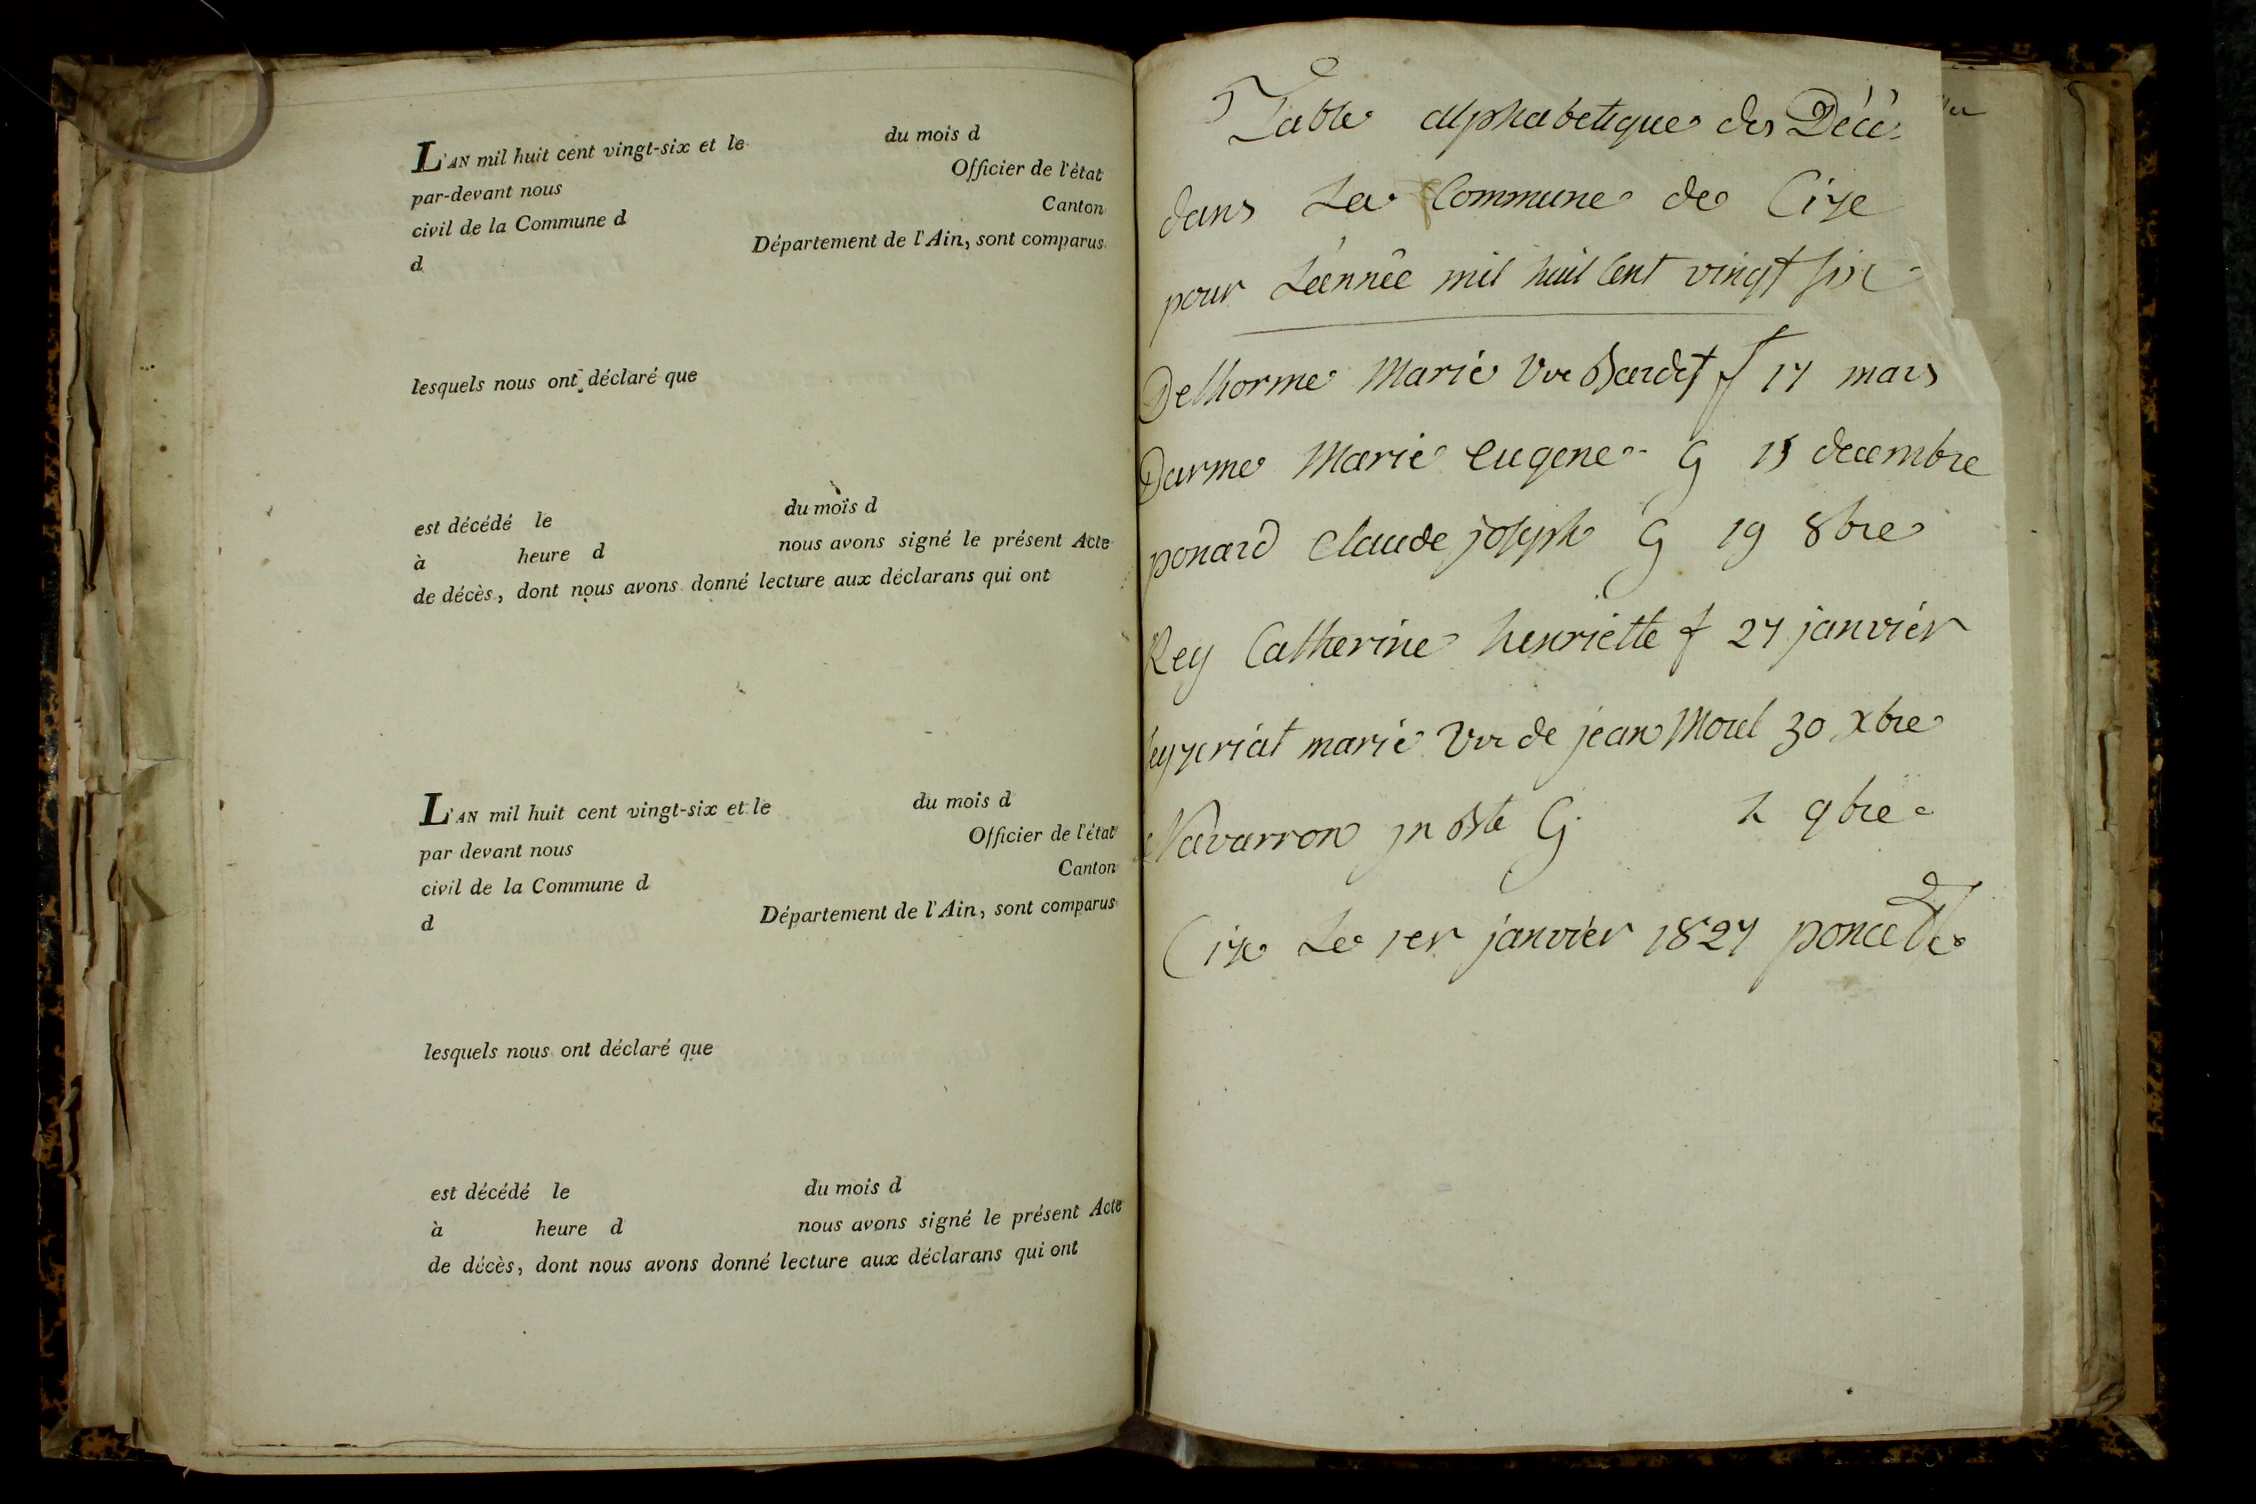 L'AN mil huit cent vingt-six et le du mois d
par-devant nous Officier de l'état
civil de la Commune d Canton
d Département de l'Ain, sont comparus
lesquels nous ont déclaré que
est décédé le du mois d
à heure d nous avons signé le présent Acte
de décès, dont nous avons donné lecture aux déclarans qui ont
L'AN mil huit cent vingt-six et le du mois d
par devant nous Officier de l'état
civil de la Commune d Canton
d Département de l'Ain, sont comparus
lesquels nous ont déclaré que
est décédé le du mois d
à heure d nous avons signé le présent Acte
de décès, dont nous avons donné lecture aux déclarans qui ont
Table alphabetique des Décè
dans La Commune de Cize
pour L'année mil huit Cent vingt six
Delhorme Marie Vve f 17 mars
Darme Marie Eugene G 15 decembre
ponard Claude joseph G 19 8bre
Rey Catherine henriette f 27 janvier
marie Vve de jean Morel 30 xbre
Navarron jn Bte G 2 9bre
Cize Le 1er janvier 1827 poncet